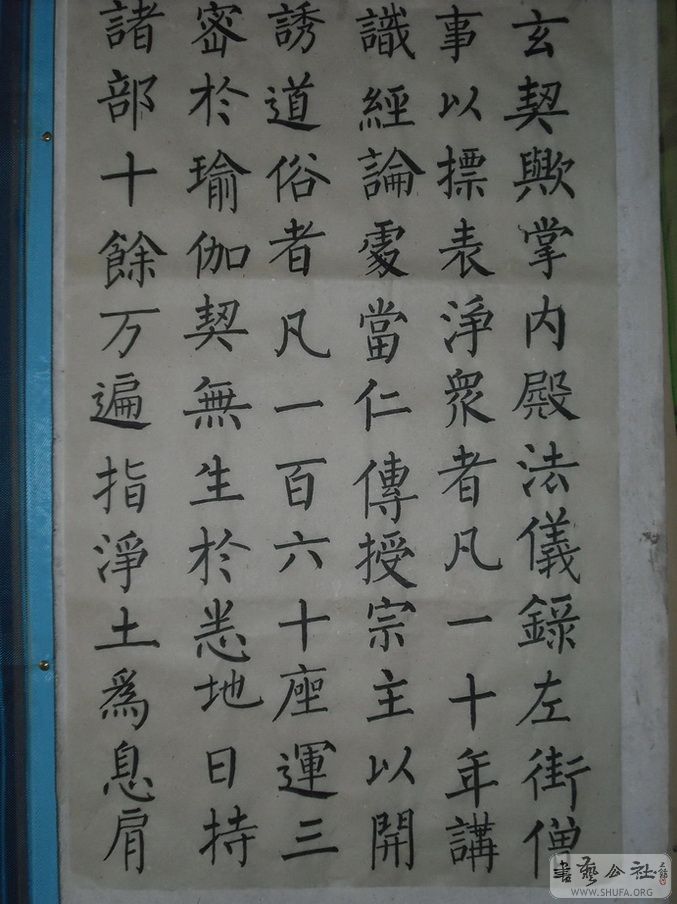 玄契歟掌內殿法儀錄左街僧
事以摽表淨衆者凡一十年講
識經論處當仁傳授宗主以開
誘道俗者凡一百六十座運三
密於瑜伽契無生於悉地日持
諸部十餘万遍指淨土爲息肩
書藝公社
WWW.SHUFA.ORG